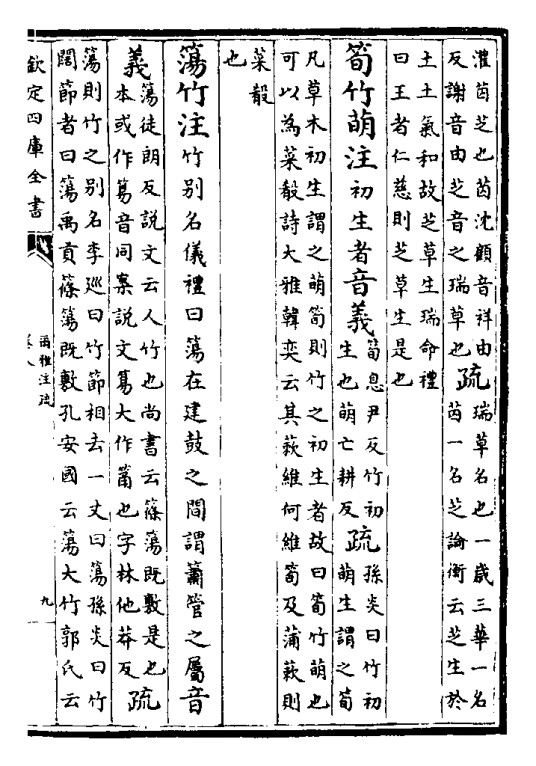 灌茵芝也茵沈顧音祥由
反謝音由芝音之瑞草也疏瑞草名也一歳三華一名
茵一名芝論衡云芝生於
土土氣和故芝草生瑞命禮
曰王者仁慈則芝草生是也
筍竹萌注初生者音義筍息尹反竹初
生也萌亡耕反疏孫炎曰竹初
萌生謂之筍
凡草木初生謂之萌筍則竹之初生者故曰筍竹萌也
可以為菜殽詩大雅韓奕云其蔌維何維筍及蒲蔌則
菜殽
也
簜竹注竹别名儀禮曰簜在建鼓之間謂簫管之屬音
義簜徒朗反說文云大竹也尚書云篠簜既敷是也
本或作䈰音同案說文䈰大作筩也字林他莽反疏
簜則竹之别名李廵曰竹節相去一丈曰簜孫炎曰竹
闊節者曰簜禹貢篠簜既敷孔安國云簜大竹郭氏云
欽定四庫全書
爾雅注疏
卷八
九